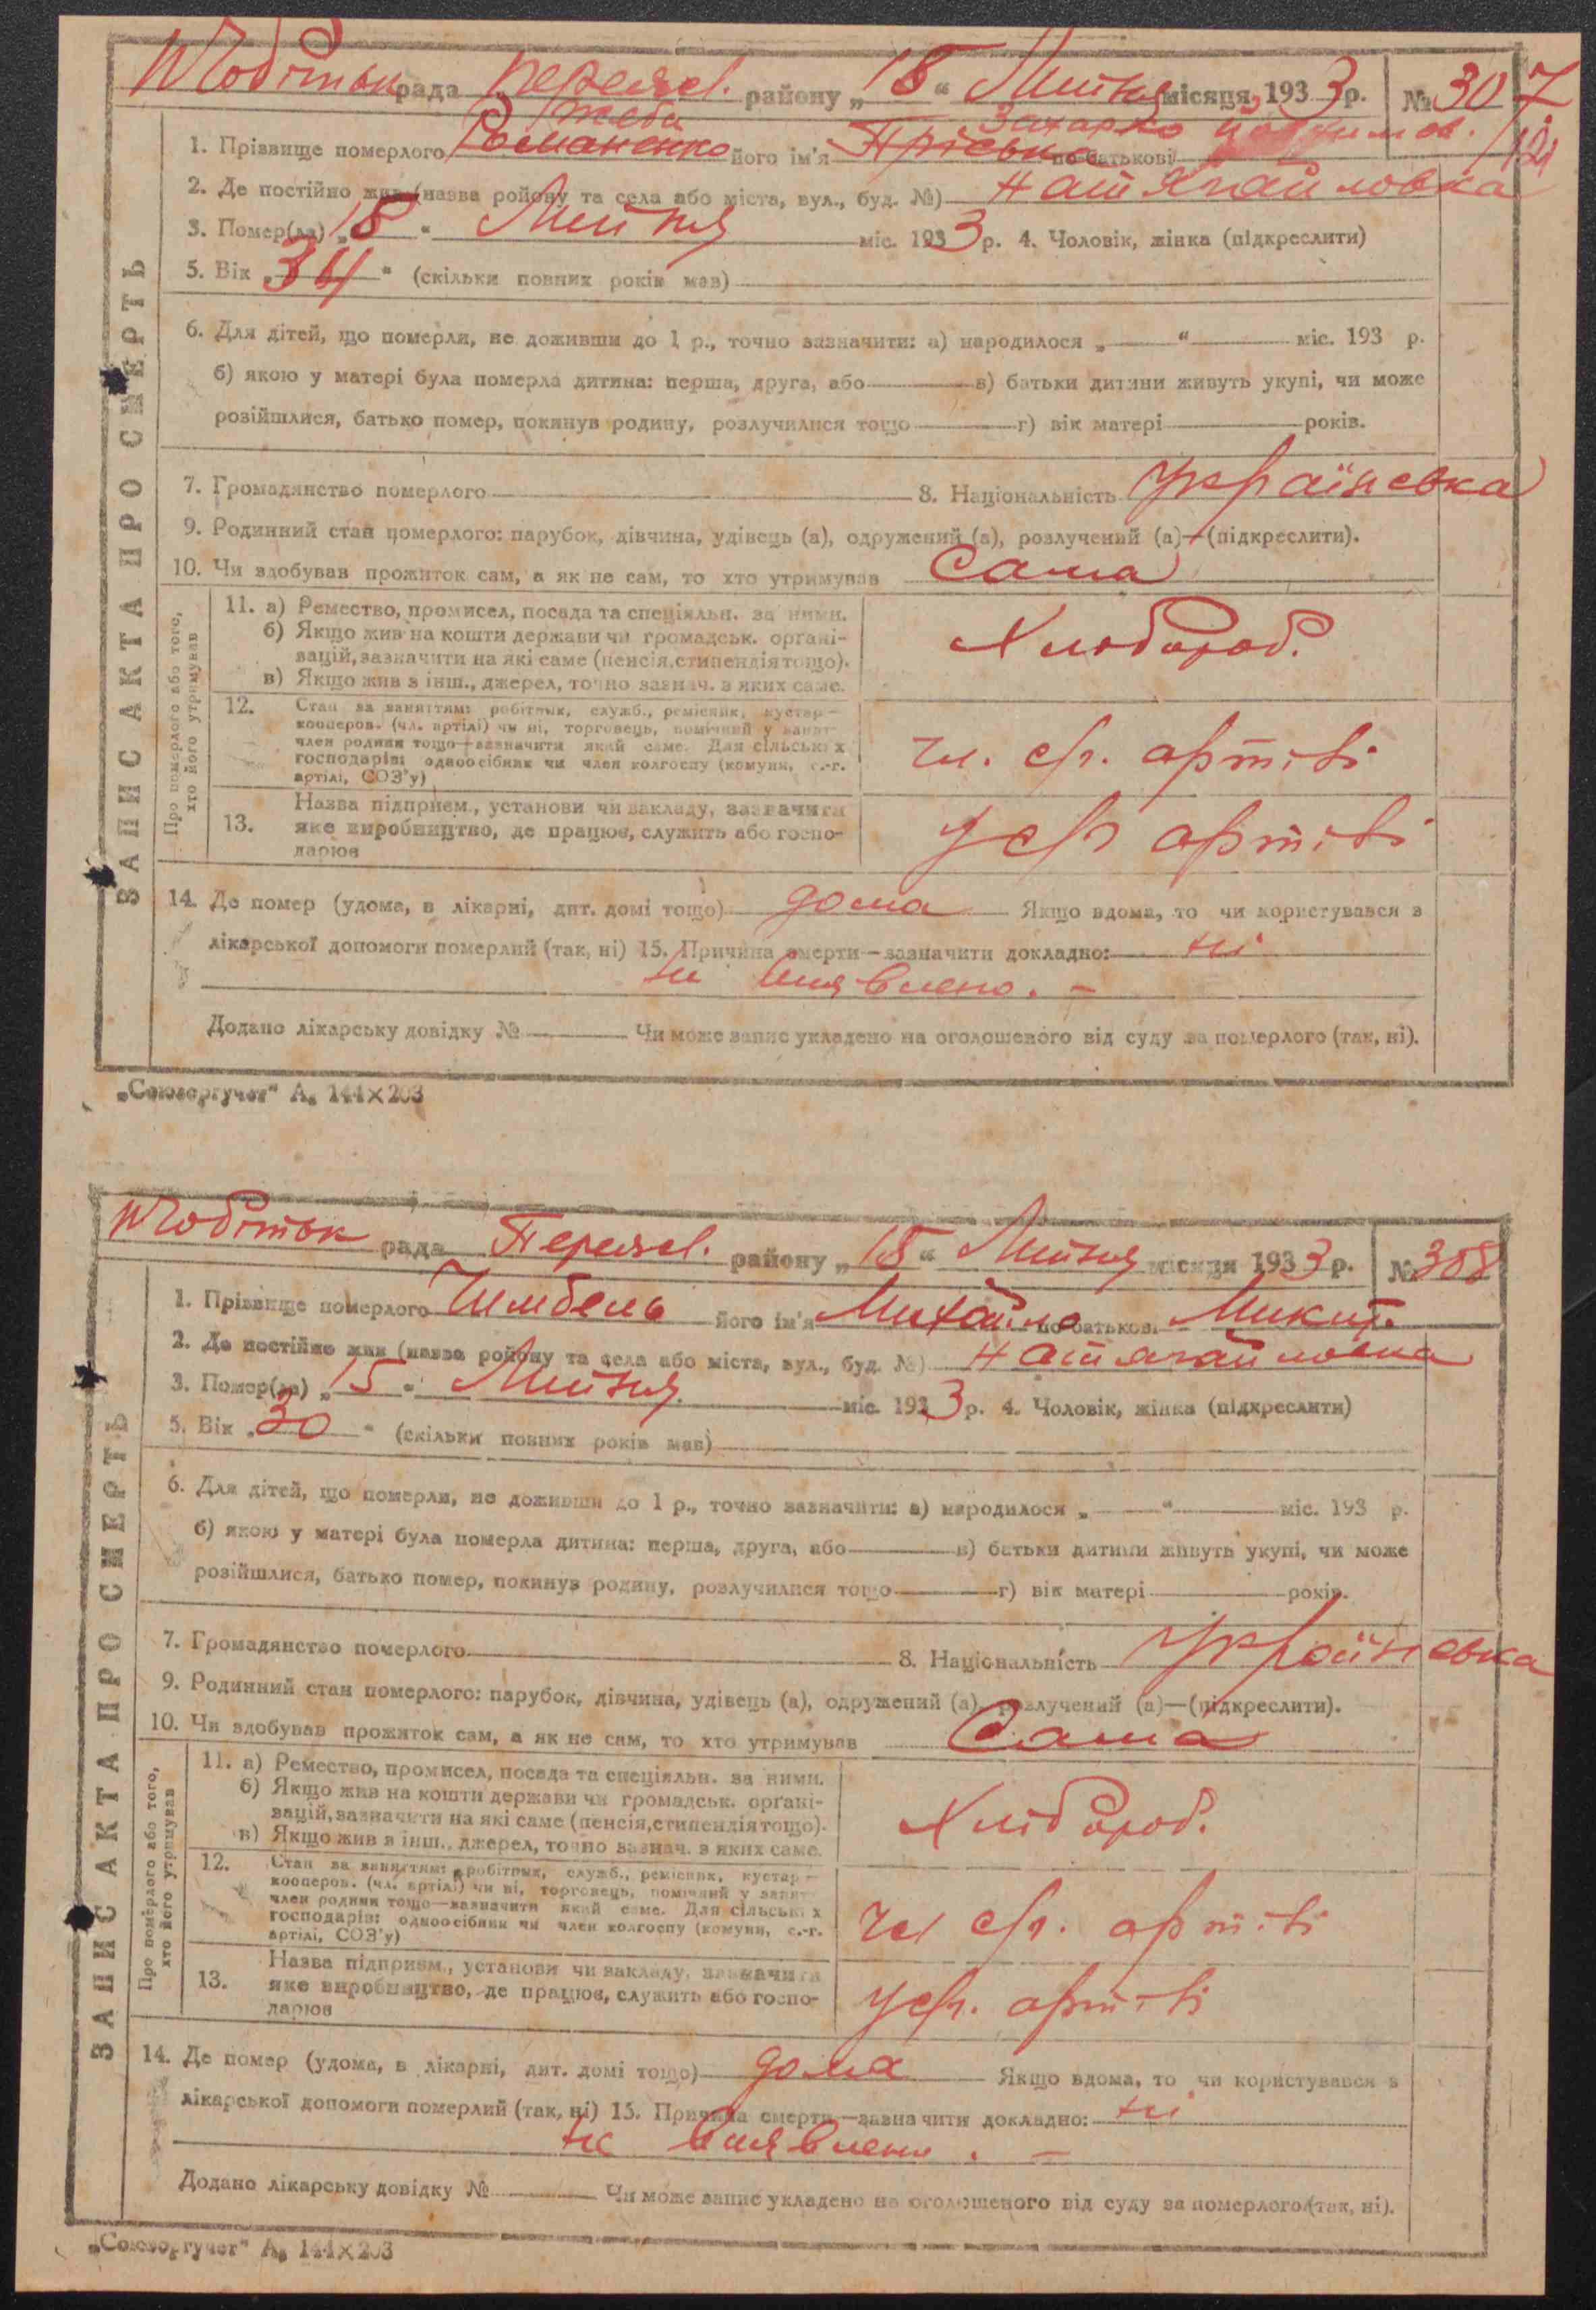 Чобітьк рада Переясл. району „18“ Липня місяця, 1933 р. № 307
1. Прізвище померлого Романенко його ім'я Пріська по батькові
2. Де постійно жив (назва ройону та села або міста, вул., буд. №) Натягайловка
3. Помер(ла) „18“ Липня міс. 1933 р. 4. Чоловік, жінка (підкреслити)
5. Вік „34“ (скільки повних років мав)
6. Для дітей, що померли, не доживши до 1 р., точно зазначити: а) народилося „ “ міс. 193 р.
б) якою у матері була померла дитина: перша, друга, або в) батьки дитини живуть укупі, чи може
розійшлися, батько помер, покинув родину, розлучилися тощо г) вік матері років.
7. Громадянство померлого 8. Національність українська
9. Родинний стан померлого: парубок, дівчина, удівець (а), одружений (а), розлучений (а)—(підкреслити).
10. Чи здобував прожиток сам, а як не сам, то хто утримував Сама
ЗАПИС АКТА ПРО СМЕРТЬ
Про померлого або того,
хто його утримував
11. а) Ремество, промисел, посада та спеціяльн. за ними.
б) Якщо жив на кошти держави чи громадськ. органі-
зацій, зазначити на які саме (пенсія, стипендія тощо).
в) Якщо жив з інш., джерел, точно зазнач. з яких саме.
Хлібороб.
12. Стан за заняттям: робітник, служб., ремісник, кустар—
кооперов. (чл. артілі) чи ні, торговець, помічний у занят.
член родини тощо—зазначити який саме. Для сільських
господарів: одноосібник чи член колгоспу (комуни, с.-г.
артілі, СОЗ'у)
чл. с/г. артілі
13. Назва підприєм., установи чи закладу, зазначити
яке виробництво, де працює, служить або госпо-
дарює
у с/г артілі
14. Де помер (удома, в лікарні, дит. домі тощо) дома Якщо вдома, то чи користувався з
лікарської допомоги померлий (так, ні) 15. Причина смерти—зазначити докладно: ні
не виявлено. —
Додано лікарську довідку № Чи може запис укладено на оголошеного від суду за померлого (так, ні).
„Союзоргучет“ А₆ 144×203
Чобітьк рада Переясл. району „18“ Липня місяця 1933 р. № 308
1. Прізвище померлого Цимбель його ім'я Михайло по батькові Микит.
2. Де постійно жив (назва ройону та села або міста, вул., буд. №) Натягайловка
3. Помер(ла) „15“ Липня міс. 1933 р. 4. Чоловік, жінка (підкреслити)
5. Вік „30“ (скільки повних років мав)
6. Для дітей, що померли, не доживши до 1 р., точно зазначити: а) народилося „ “ міс. 193 р.
б) якою у матері була померла дитина: перша, друга, або в) батьки дитини живуть укупі, чи може
розійшлися, батько помер, покинув родину, розлучилися тощо г) вік матері років.
7. Громадянство померлого 8. Національність українська
9. Родинний стан померлого: парубок, дівчина, удівець (а), одружений (а), розлучений (а)—(підкреслити).
10. Чи здобував прожиток сам, а як не сам, то хто утримував Сама
ЗАПИС АКТА ПРО СМЕРТЬ
Про померлого або того,
хто його утримував
11. а) Ремество, промисел, посада та спеціяльн. за ними.
б) Якщо жив на кошти держави чи громадськ. органі-
зацій, зазначити на які саме (пенсія, стипендія тощо).
в) Якщо жив з інш., джерел, точно зазнач. з яких саме.
Хлібороб.
12. Стан за заняттям: робітник, служб., ремісник, кустар—
кооперов. (чл. артілі) чи ні, торговець, помічний у занят.
член родини тощо—зазначити який саме. Для сільських
господарів: одноосібник чи член колгоспу (комуни, с.-г.
артілі, СОЗ'у)
чл с/г. артілі
13. Назва підприєм., установи чи закладу, зазначити
яке виробництво, де працює, служить або госпо-
дарює
у с/г. артілі
14. Де помер (удома, в лікарні, дит. домі тощо) дома Якщо вдома, то чи користувався з
лікарської допомоги померлий (так, ні) 15. Причина смерти—зазначити докладно: ні
не виявлено. —
Додано лікарську довідку № Чи може запис укладено на оголошеного від суду за померлого (так, ні).
„Союзоргучет“ А₆ 144×203